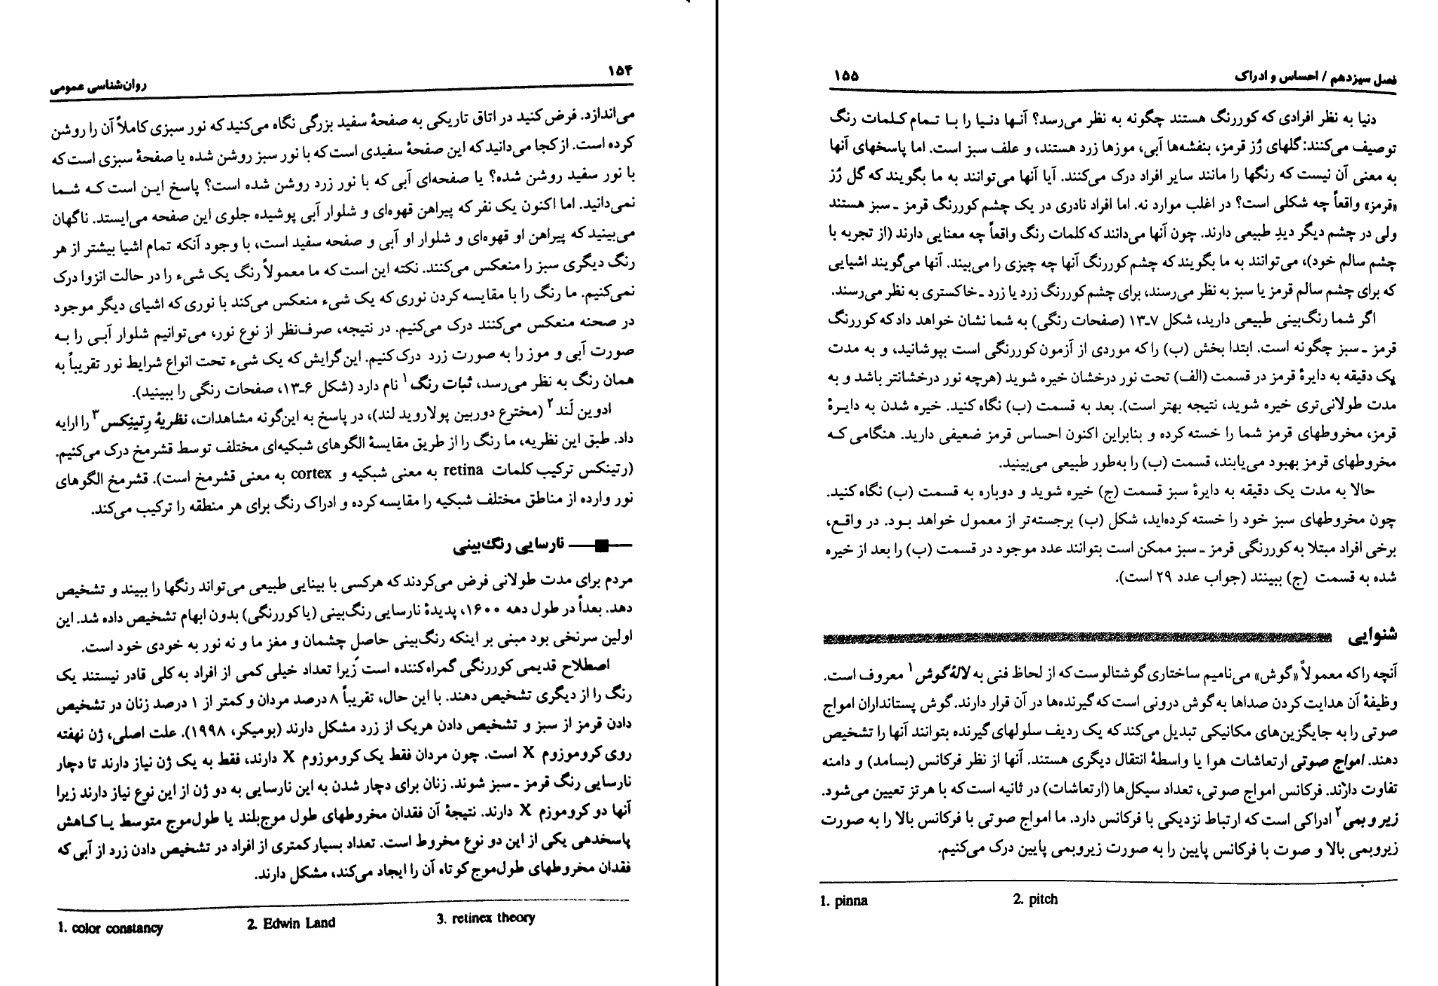 ۱۵۴
روان‌شناسی عمومی
می‌اندازد. فرض کنید در اتاق تاریکی به صفحهٔ سفید بزرگی نگاه می‌کنید که نور سبزی کاملاً آن را روشن
کرده است. از کجا می‌دانید که این صفحهٔ سفیدی است که با نور سبز روشن شده یا صفحهٔ سبزی است که
با نور سفید روشن شده؟ یا صفحه‌ای آبی که با نور زرد روشن شده است؟ پاسخ این است که شما
نمی‌دانید. اما اکنون یک نفر که پیراهن قهوه‌ای و شلوار آبی پوشیده جلوی این صفحه می‌ایستد. ناگهان
می‌بینید که پیراهن او قهوه‌ای و شلوار او آبی و صفحه سفید است، با وجود آنکه تمام اشیا بیشتر از هر
رنگ دیگری سبز را منعکس می‌کنند. نکته این است که ما معمولاً رنگ یک شیء را در حالت انزوا درک
نمی‌کنیم. ما رنگ را با مقایسه کردن نوری که یک شیء منعکس می‌کند با نوری که اشیای دیگر موجود
در صحنه منعکس می‌کنند درک می‌کنیم. در نتیجه، صرف‌نظر از نوع نور، می‌توانیم شلوار آبی را به
صورت آبی و موز را به صورت زرد درک کنیم. این گرایش که یک شیء تحت انواع شرایط نور تقریباً به
همان رنگ به نظر می‌رسد، ثبات رنگ۱ نام دارد (شکل ۶ـ۱۳، صفحات رنگی را ببینید).
ادوین لَند۲ (مخترع دوربین پولاروید لند)، در پاسخ به این‌گونه مشاهدات، نظریهٔ رِتینِکس۳ را ارایه
داد. طبق این نظریه، ما رنگ را از طریق مقایسهٔ الگوهای شبکیه‌ای مختلف توسط قشرمخ درک می‌کنیم.
(رتینکس ترکیب کلمات retina به معنی شبکیه و cortex به معنی قشرمخ است). قشرمخ الگوهای
نور وارده از مناطق مختلف شبکیه را مقایسه کرده و ادراک رنگ برای هر منطقه را ترکیب می‌کند.
نارسایی رنگ‌بینی
مردم برای مدت طولانی فرض می‌کردند که هرکسی با بینایی طبیعی می‌تواند رنگها را ببیند و تشخیص
دهد. بعداً در طول دهه ۱۶۰۰، پدیدهٔ نارسایی رنگ‌بینی (یا کوررنگی) بدون ابهام تشخیص داده شد. این
اولین سرنخی بود مبنی بر اینکه رنگ‌بینی حاصل چشمان و مغز ما و نه نور به خودی خود است.
اصطلاح قدیمی کوررنگی گمراه‌کننده است زیرا تعداد خیلی کمی از افراد به کلی قادر نیستند یک
رنگ را از دیگری تشخیص دهند. با این حال، تقریباً ۸ درصد مردان و کمتر از ۱ درصد زنان در تشخیص
دادن قرمز از سبز و تشخیص دادن هریک از زرد مشکل دارند (بومیکر، ۱۹۹۸). علت اصلی، ژن نهفته
روی کروموزوم X است. چون مردان فقط یک کروموزوم X دارند، فقط به یک ژن نیاز دارند تا دچار
نارسایی رنگ قرمز ـ سبز شوند. زنان برای دچار شدن به این نارسایی به دو ژن از این نوع نیاز دارند زیرا
آنها دو کروموزم X دارند. نتیجهٔ آن فقدان مخروطهای طول موج‌بلند یا طول‌موج متوسط یا کاهش
پاسخدهی یکی از این دو نوع مخروط است. تعداد بسیار کمتری از افراد در تشخیص دادن زرد از آبی که
فقدان مخروطهای طول‌موج کوتاه آن را ایجاد می‌کند، مشکل دارند.
1. color constancy 2. Edwin Land 3. retinex theory
فصل سیزدهم / احساس و ادراک
۱۵۵
دنیا به نظر افرادی که کوررنگ هستند چگونه به نظر می‌رسد؟ آنها دنیا را با تمام کلمات رنگ
توصیف می‌کنند: گلهای رُز قرمز، بنفشه‌ها آبی، موزها زرد هستند، و علف سبز است. اما پاسخهای آنها
به معنی آن نیست که رنگها را مانند سایر افراد درک می‌کنند. آیا آنها می‌توانند به ما بگویند که گل رُز
«قرمز» واقعاً چه شکلی است؟ در اغلب موارد نه. اما افراد نادری در یک چشم کوررنگ قرمز ـ سبز هستند
ولی در چشم دیگر دیدِ طبیعی دارند. چون آنها می‌دانند که کلمات رنگ واقعاً چه معنایی دارند (از تجربه با
چشم سالم خود)، می‌توانند به ما بگویند که چشم کوررنگ آنها چه چیزی را می‌بیند. آنها می‌گویند اشیایی
که برای چشم سالم قرمز یا سبز به نظر می‌رسند، برای چشم کوررنگ زرد یا زرد ـ خاکستری به نظر می‌رسند.
اگر شما رنگ‌بینی طبیعی دارید، شکل ۷ـ۱۳ (صفحات رنگی) به شما نشان خواهد داد که کوررنگ
قرمز ـ سبز چگونه است. ابتدا بخش (ب) را که موردی از آزمون کوررنگی است بپوشانید، و به مدت
یک دقیقه به دایرهٔ قرمز در قسمت (الف) تحت نور درخشان خیره شوید (هرچه نور درخشانتر باشد و به
مدت طولانی‌تری خیره شوید، نتیجه بهتر است). بعد به قسمت (ب) نگاه کنید. خیره شدن به دایرهٔ
قرمز، مخروطهای قرمز شما را خسته کرده و بنابراین اکنون احساس قرمز ضعیفی دارید. هنگامی که
مخروطهای قرمز بهبود می‌یابند، قسمت (ب) را به‌طور طبیعی می‌بینید.
حالا به مدت یک دقیقه به دایرهٔ سبز قسمت (ج) خیره شوید و دوباره به قسمت (ب) نگاه کنید.
چون مخروطهای سبز خود را خسته کرده‌اید، شکل (ب) برجسته‌تر از معمول خواهد بود. در واقع،
برخی افراد مبتلا به کوررنگی قرمز ـ سبز ممکن است بتوانند عدد موجود در قسمت (ب) را بعد از خیره
شده به قسمت (ج) ببینند (جواب عدد ۲۹ است).
شنوایی
آنچه را که معمولاً «گوش» می‌نامیم ساختاری گوشتالوست که از لحاظ فنی به لالهٔ گوش۱ معروف است.
وظیفهٔ آن هدایت کردن صداها به گوش درونی است که گیرنده‌ها در آن قرار دارند. گوش پستانداران امواج
صوتی را به جایگزین‌های مکانیکی تبدیل می‌کند که یک ردیف سلولهای گیرنده بتوانند آنها را تشخیص
دهند. امواج صوتی ارتعاشات هوا یا واسطهٔ انتقال دیگری هستند. آنها از نظر فرکانس (بسامد) و دامنه
تفاوت دارند. فرکانس امواج صوتی، تعداد سیکل‌ها (ارتعاشات) در ثانیه است که با هرتز تعیین می‌شود.
زیر و بمی۲ ادراکی است که ارتباط نزدیکی با فرکانس دارد. ما امواج صوتی با فرکانس بالا را به صورت
زیروبمی بالا و صوت با فرکانس پایین را به صورت زیروبمی پایین درک می‌کنیم.
1. pinna 2. pitch